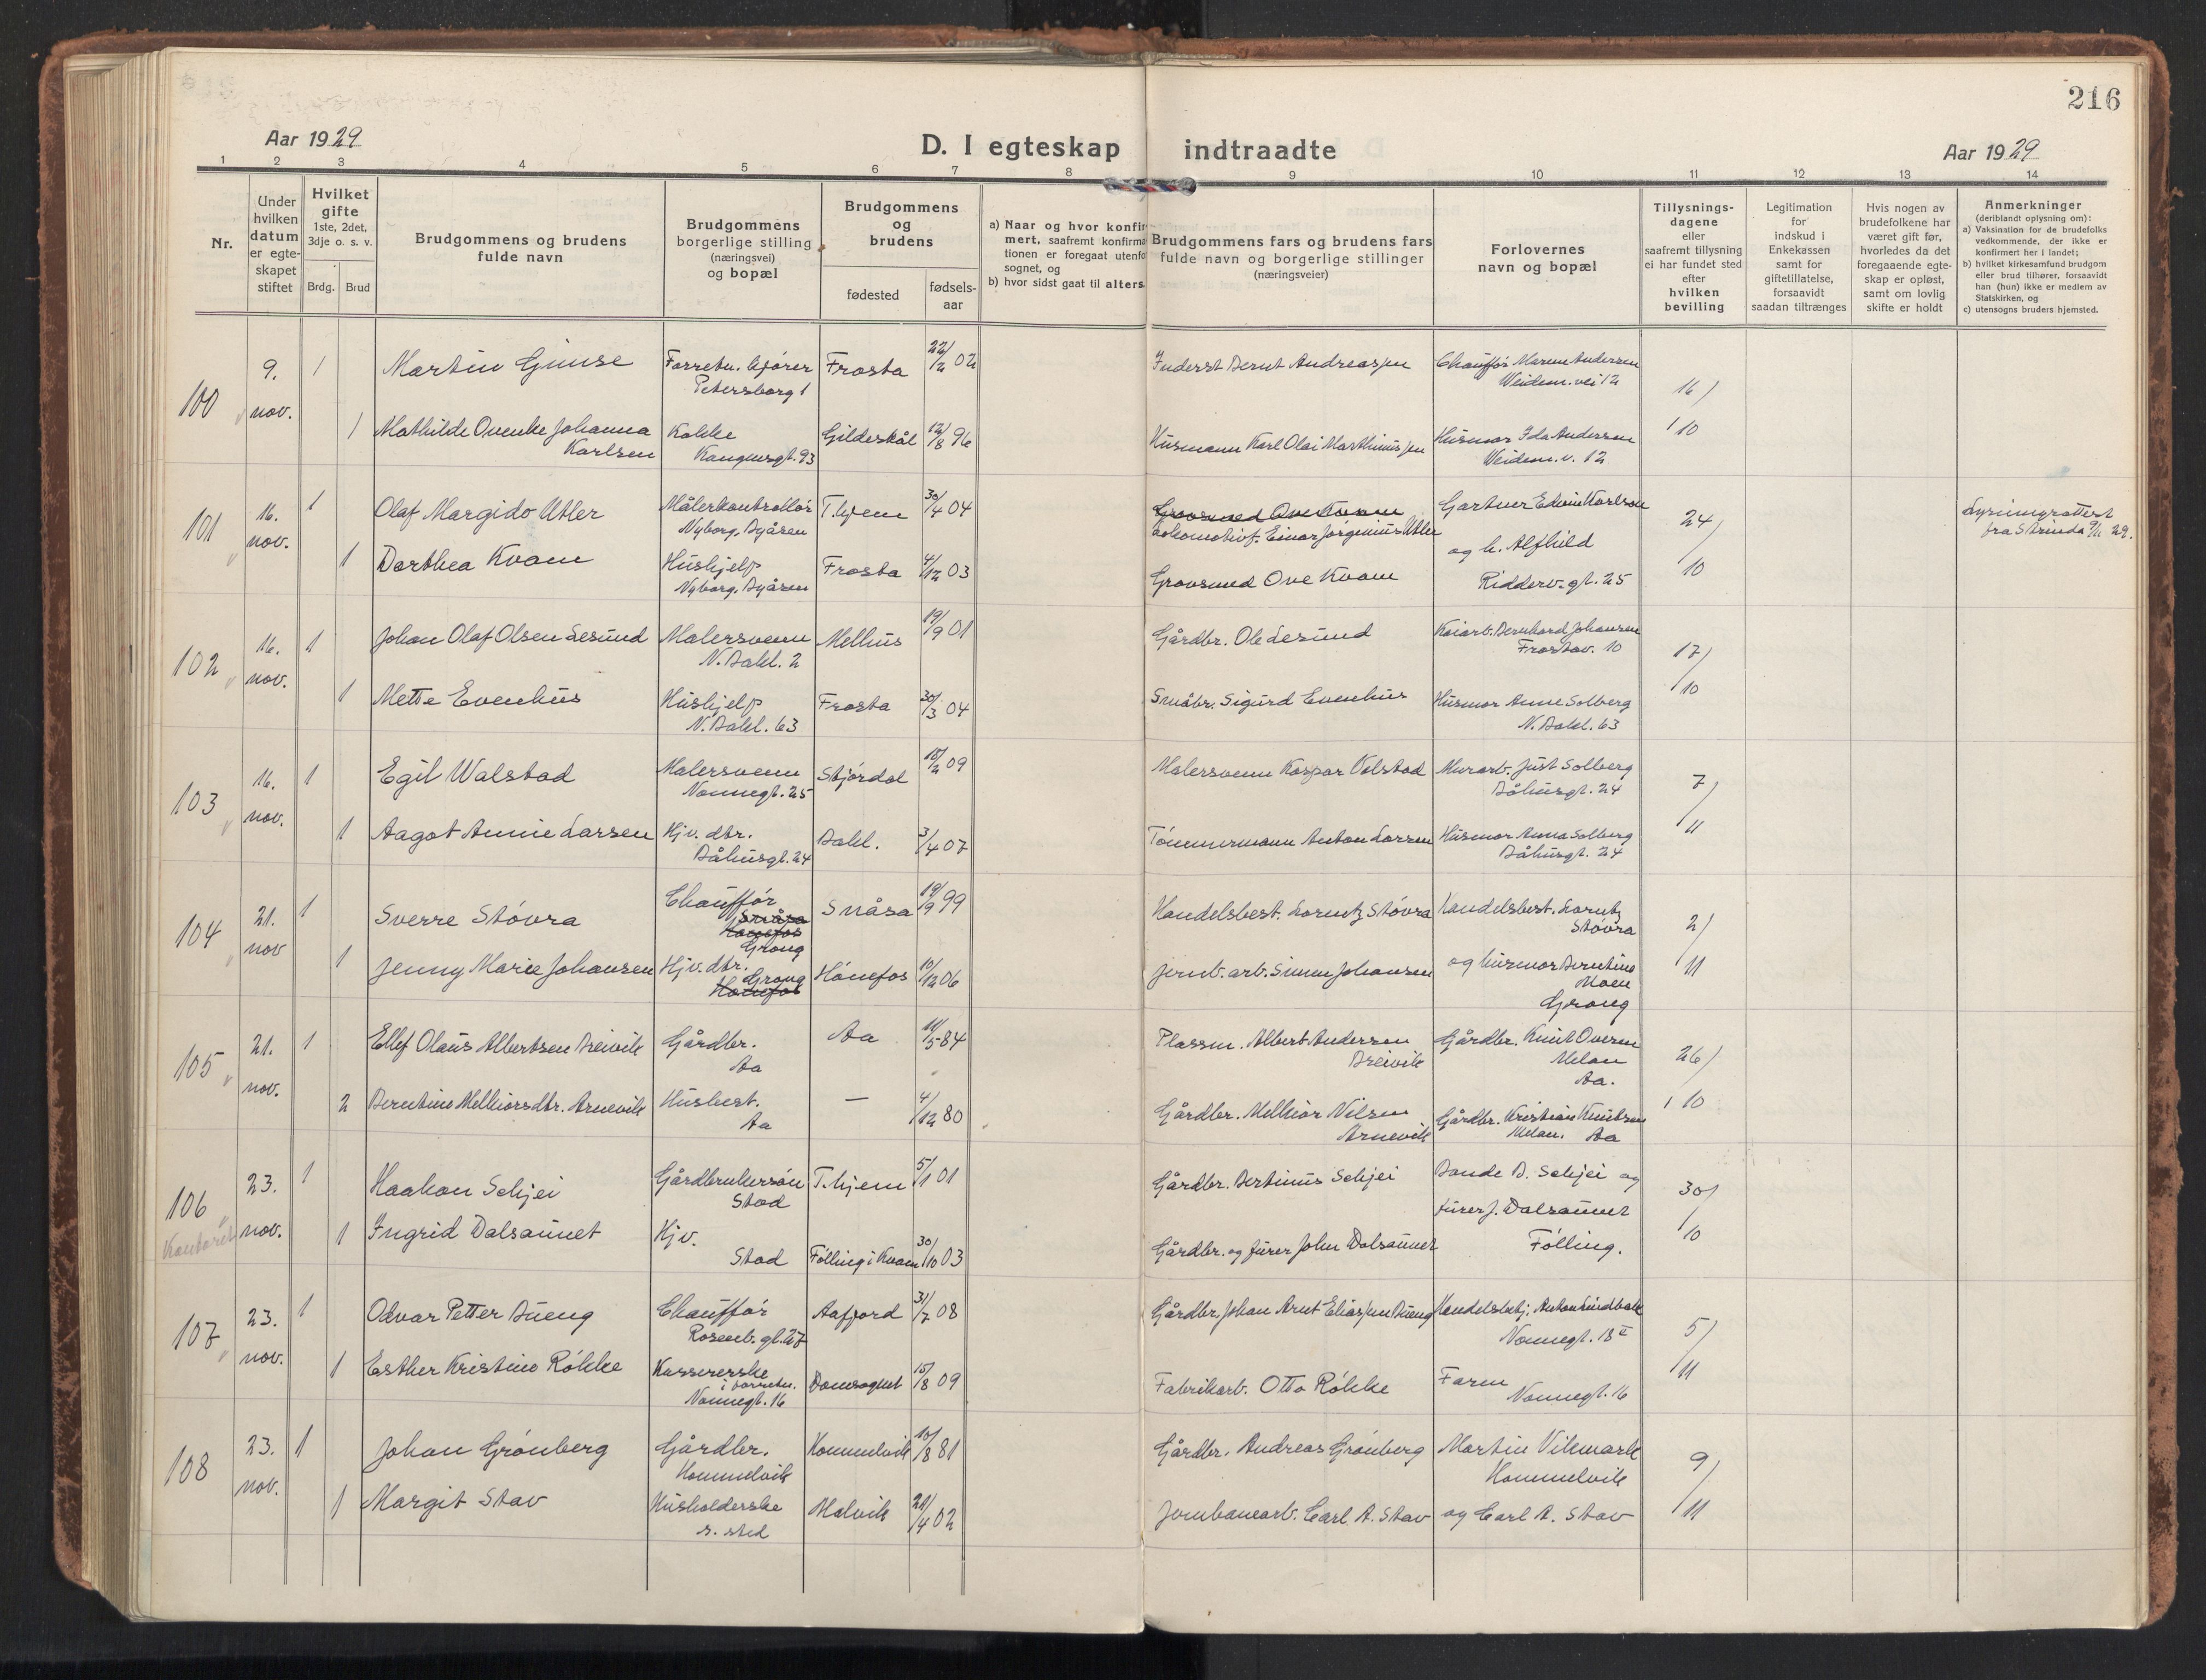 216
Aar 1929
D. I egteskap indtraadte
Aar 1929
1 2 3 4 5 6 7 8 9 10 11 12 13 14
Nr.
Under
hvilken
datum
er egte-
skapet
stiftet
Hvilket
gifte
1ste, 2det,
3dje o. s. v.
Brdg. Brud
Brudgommens og brudens
fulde navn
Brudgommens
borgerlige stilling
(næringsvei)
og bopæl
Brudgommens
og
brudens
fødested
fødsels-
aar
a) Naar og hvor konfir
mert, saafremt konfirma
tionen er foregaat utenfo
sognet, og
b) hvor sidst gaat til alters
Brudgommens fars og brudens fars
fulde navn og borgerlige stillinger
(næringsveier)
Forlovernes
navn og bopæl
Tillysnings-
dagene
eller
saafremt tillysning
ei har fundet sted
efter
hvilken
bevilling
Legitimation
for
indskud i
Enkekassen
samt for
giftetillatelse,
forsaavidt
saadan tiltrænges
Hvis nogen av
brudefolkene har
været gift før,
hvorledes da det
foregaaende egte-
skap er opløst,
samt om lovlig
skifte er holdt
Anmerkninger
(deriblandt oplysning om):
a) Vaksination for de brudefolks
vedkommende, der ikke er
konfirmert her i landet;
b) hvilket kirkesamfund brudgom
eller brud tilhører, forsaavidt
han (hun) ikke er medlem av
Statskirken, og
c) utensogns bruders hjemsted.
100 9. nov. 1 Martin Gimse Forretn. kjører Petersborg 1 Frosta 22/2 02 Inderst Bernt Andreassen Chauffør Andersen Weidem. vei 12 16/10
1 Mathilde Johanna Karlsen Kokke 93 Gildeskål 12/8 96 Husmann Karl Olai Marthinussen Husmor Ida Andersen Weidem. v. 12
101 16. nov. 1 Olaf Margido Utler Målerkontrollør Nyborg, Byåsen T.hjem 30/4 04 Grovsmed Ove Kvam
Lokomotivf. Einar Jørginius Utler Gartner Edvin Karlson 24/10 fra Strinda 9/11 29.
1 Dorthea Kvam Hushjelp Nyborg, Byåsen Frosta 4/12 03 Grovsmed Ove Kvam og h. Alfhild Ridderv. gt. 25
102 16. nov. 1 Johan Olaf Olsen Lesund Malersvenn N. Bakl. 2 Melhus 19/9 01 Gårdbr. Ole Lesund Kaiarb. Bernhard Johansen Frostav. 10 17/10
1 Mette Evenhus Hushjelp N. Bakl. 63 Frosta 30/3 04 Småbr. Sigurd Evenhus Husmor Anne Solberg N. Bakl. 63
103 16. nov. 1 Egil Walstad Malersvenn Nonnegt. 25 Stjørdal 09 Malersvenn Kaspar Valstad Murarb. Just Solberg Båhusgt. 24 7/11
1 Aagot Annie Larsen Hjv. dtr. Båhusgt. 24 Bakl. 3/4 07 Tømmermann Anton Larsen Husmor Anna Solberg Båhusgt. 24
104 21. nov 1 Sverre Støvra Chauffør Snåsa Hønefos Grong Snåsa 19/9 99 Handelsbest. Lorntz Støvra Handelsbest. Lorntz Støvra 2/11
1 Jenny Marie Johansen Hjv. dtr. Grong Hønefos Hønefos 10/12 06 Jernb. arb. Simen Johansen og husmor Berntine Moen Grong
105 21. nov. 1 Ellef Olaus Albertsen Breivik Gårdbr. Aa Aa 11/5 84 Plassm. Albert Andersen Breivik Gårdbr. Knut Oversen Melan Aa. 26/10
2 Berntine Melkiorsdtr. Arnevik Husbest. Aa — 4/12 80 Gårdbr. Melkior Nilsen Arnevik Gårdbr. Kristian Knutsen Melan. Aa
106 Kontoret 23. nov. 1 Haakon Sekjei Gårdbrukersøn Stod T.hjem 5/1 01 Gårdbr. Bertinus Sekjei Bonde B. Sekjei og 30/10
1 Ingrid Dalsaunet Hjv. Stod Følling i Kvam 30/10 03 Gårdbr. og furer John Dalsaunet furer J. Dalsaunet Følling.
107 23. nov. 1 Odvar Petter Bueng Chauffør Rosenb. gt. 27 Aafjord 31/7 08 Gårdbr. Johan Arnt Eliassen Bueng Handelsbetj. Anton Lindbak Nonnegt. 18 I 5/11
1 Esther Kristine Røkke Kassererske i forretn. Nonnegt. 16 Domsognet 15/8 09 Fabrikarb. Otto Røkke Faren Nonnegt. 16
108 23. nov. 1 Johan Grønberg Gårdbr. Hommelvik Hommelvik 10/8 81 Gårdbr. Andreas Grønberg Martin Vikmark Hommelvik 9/11
1 Margit Stav Husholderske s. sted Malvik 21/4 02 Jernbanearb. Carl A. Stav og Carl A. Stav